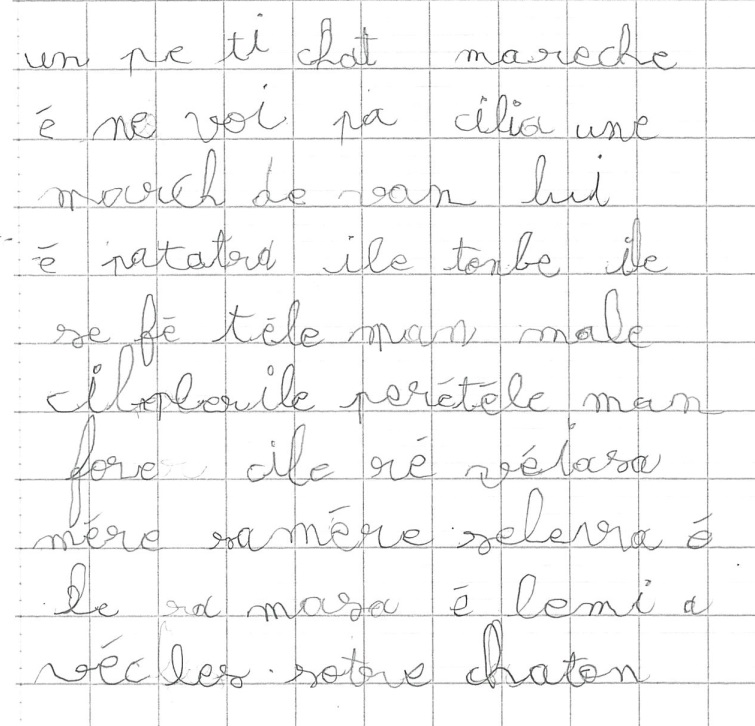 un pe ti chat mareche
é ne voi pa cilia une
march de van lui
é patatra ile tonbe ile
se fé téle man male
cilpler ile perétéle man
fore cile ré véiasa
mére samére selevra é
le ra masa é lemi a
véc les sotre chaton